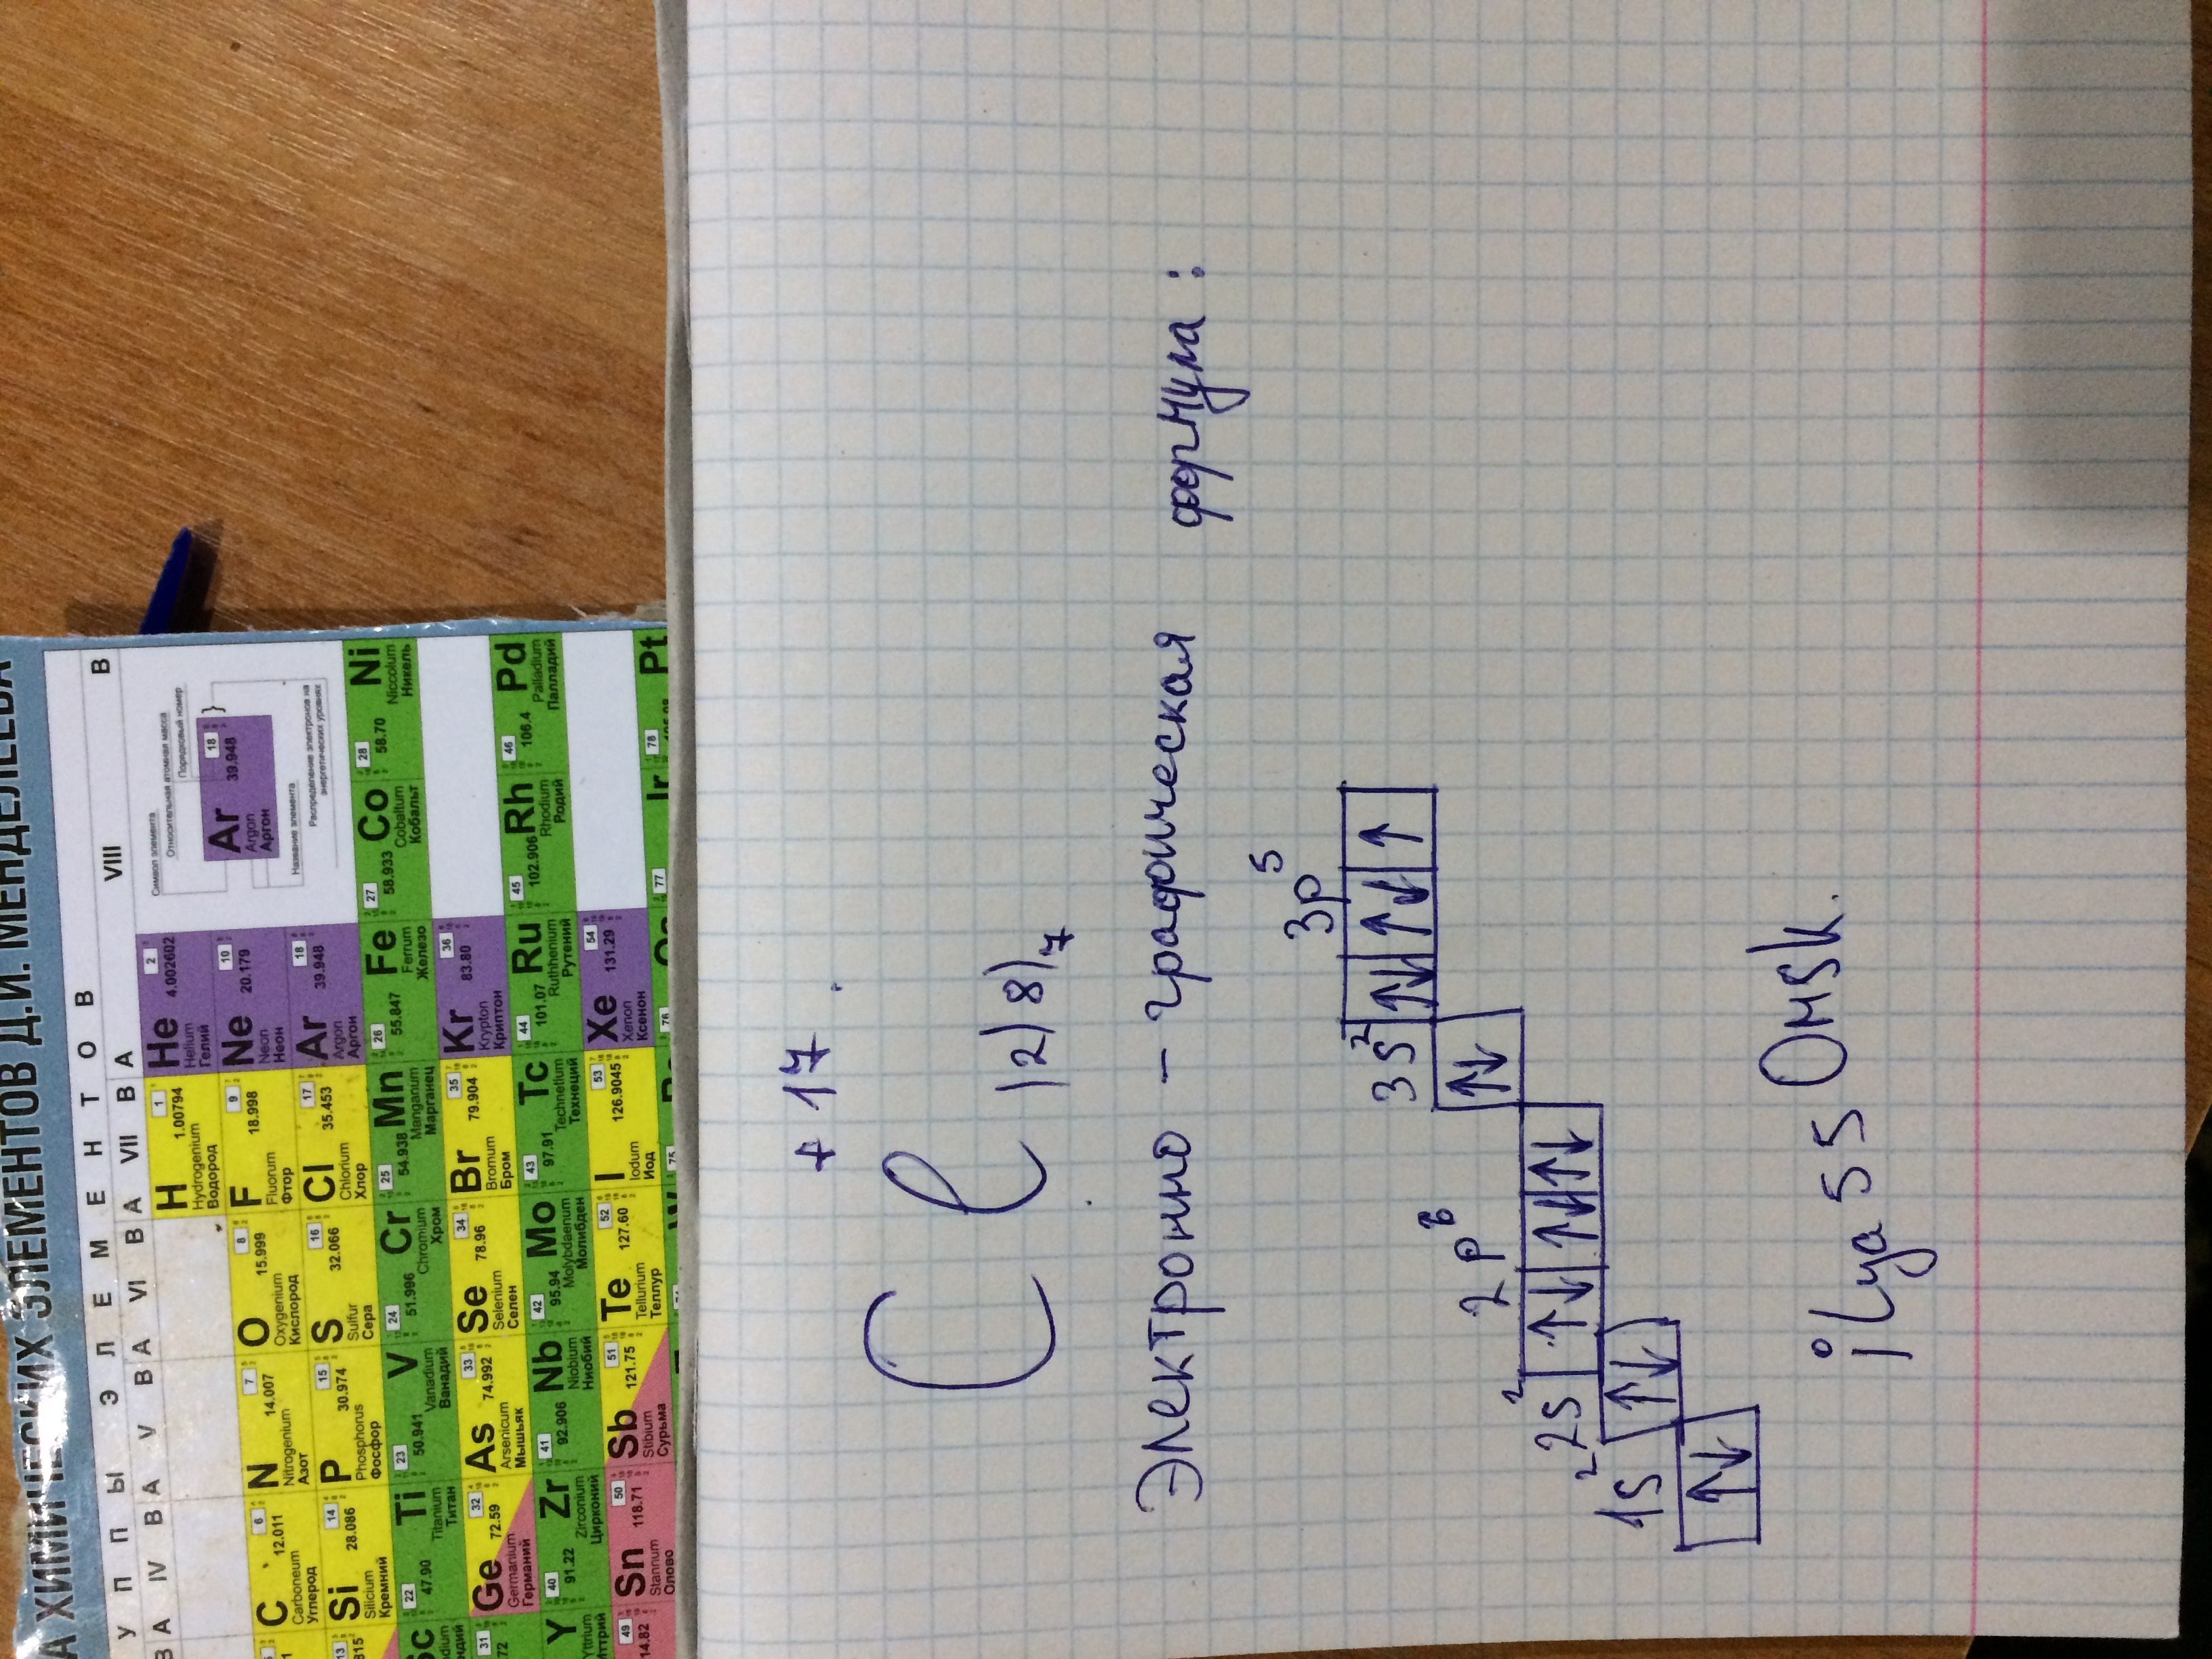 А ХИМИЧЕСКИХ ЭЛЕМЕНТОВ Д.И. МЕНДЕЛЕЕВА
У П П Ы Э Л Е М Е Н Т О В
В А IV В А V В А VI В А VII В А VIII В
H 1 1.00794 Hydrogenium Водород
He 2 4.002602 Helium Гелий
C 6 12.011 Carboneum Углерод
N 7 14.007 Nitrogenium Азот
O 8 15.999 Oxygenium Кислород
F 9 18.998 Fluorum Фтор
Ne 10 20.179 Neon Неон
Si 14 28.086 Silicium Кремний
P 15 30.974 Phosphorus Фосфор
S 16 32.066 Sulfur Сера
Cl 17 35.453 Chlorium Хлор
Ar 18 39.948 Argon Аргон
Символ элемента
Относительная атомная масса
Порядковый номер
Ar 18 39.948 Argon Аргон
Название элемента
Распределение электронов на энергетических уровнях
22 Ti 47.90 Titanium Титан
23 V 50.941 Vanadium Ванадий
24 Cr 51.996 Chromium Хром
25 Mn 54.938 Manganum Марганец
26 Fe 55.847 Ferrum Железо
27 Co 58.933 Cobaltum Кобальт
28 Ni 58.70 Niccolum Никель
Ge 32 72.59 Germanium Германий
As 33 74.992 Arsenicum Мышьяк
Se 34 78.96 Selenium Селен
Br 35 79.904 Bromum Бром
Kr 36 83.80 Krypton Криптон
Y Yttrium
40 Zr 91.22 Zirconium Цирконий
41 Nb 92.906 Niobium Ниобий
42 Mo 95.94 Molybdaenum Молибден
43 Tc 97.91 Technetium Технеций
44 Ru 101.07 Ruthhenium Рутений
45 Rh 102.906 Rhodium Родий
46 Pd 106.4 Palladium Палладий
49 14.82
Sn 50 118.71 Stannum Олово
Sb 51 121.75 Stibium Сурьма
Te 52 127.60 Tellurium Теллур
I 53 126.9045 Iodum Иод
Xe 54 131.29 Xenon Ксенон
75 76 77 Ir 78 Pt
+17
Cl )2)8)7
Электронно - графическая формула:
3p⁵
3s²
2p⁶
2s²
1s²
ilya55 Omsk.